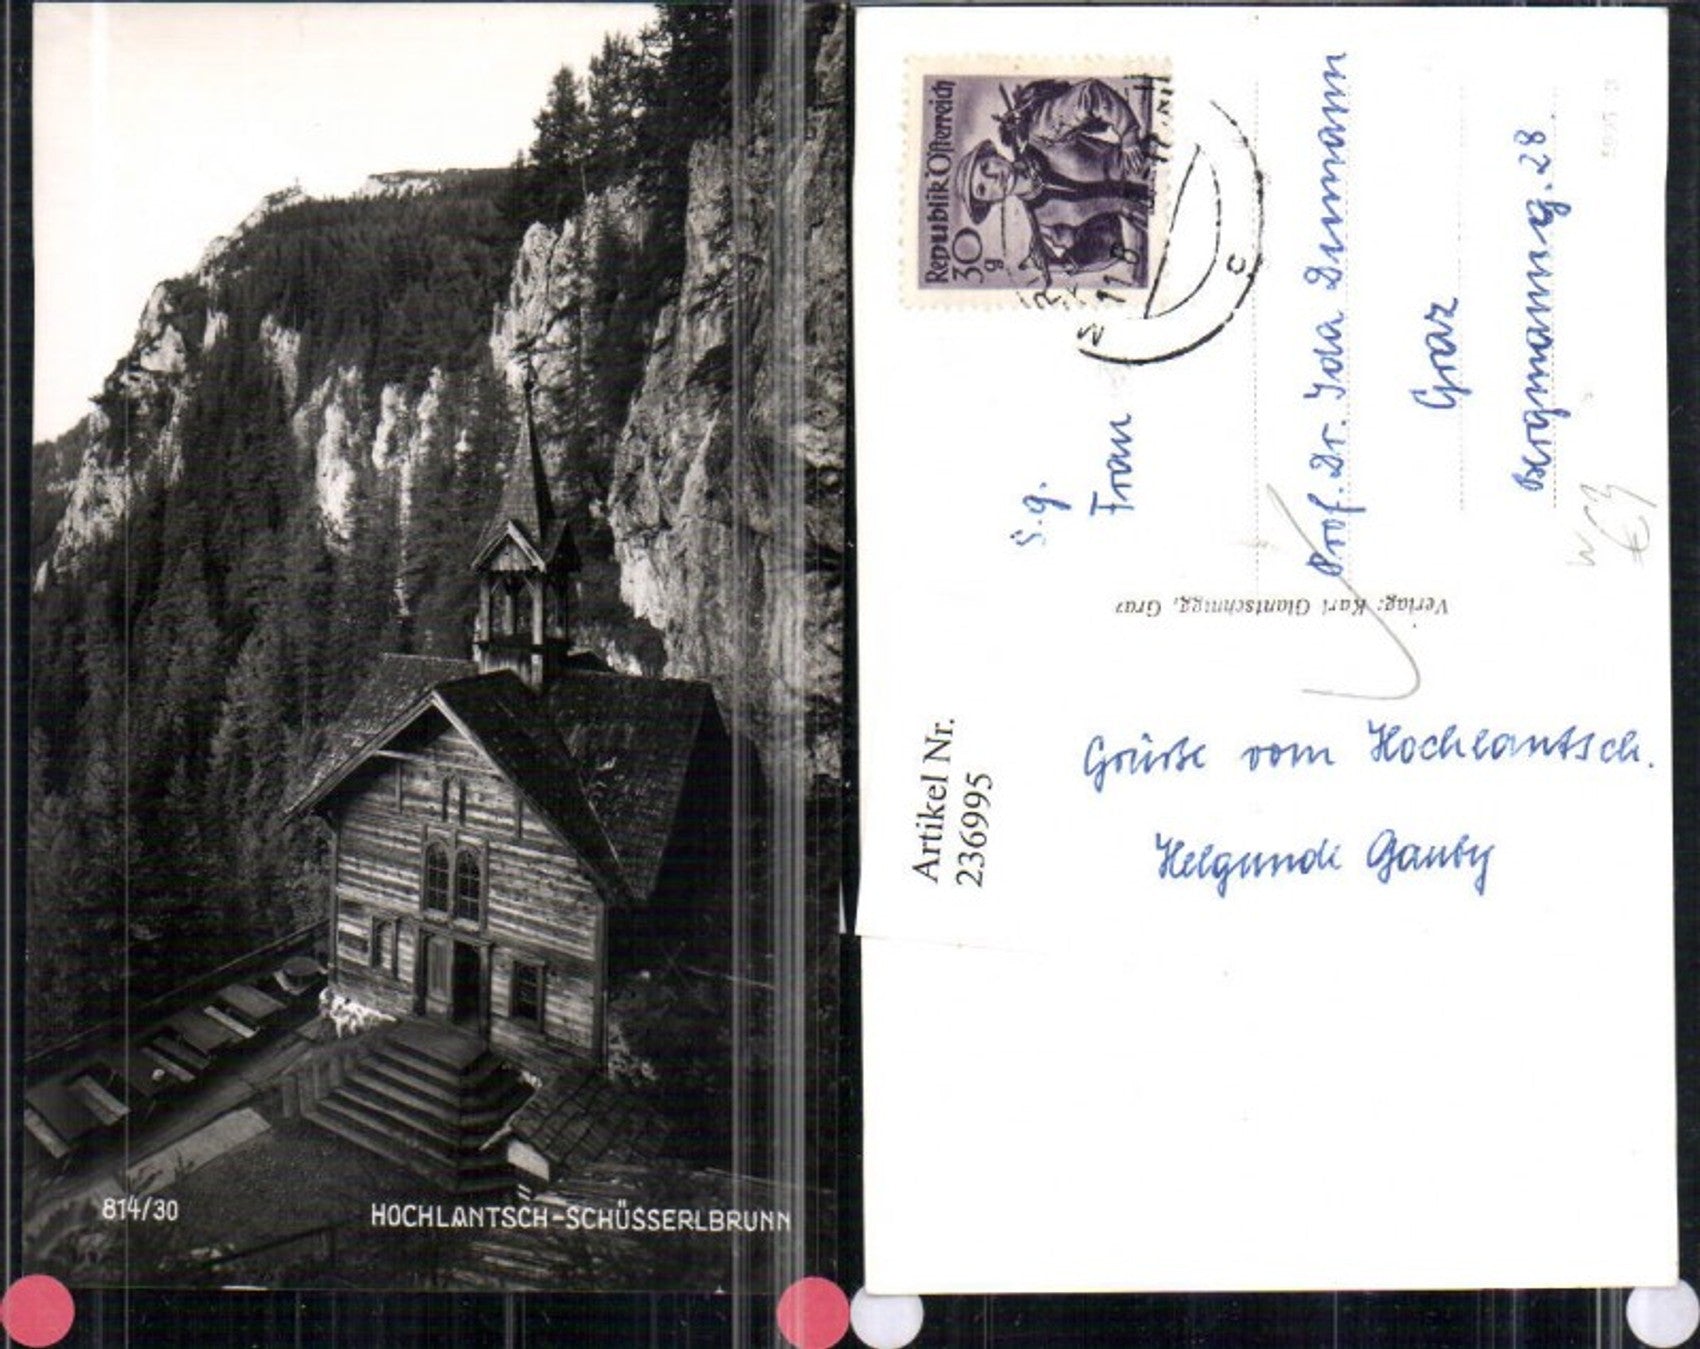 814/30
HOCHLANTSCH-SCHÜSSERLBRUNN
Republik Österreich
30
g
S.g.
Frau
Prof. Dr. Ida
Graz
Bergmanng. 28
Verlag: Karl Glantschnigg, Graz
Artikel Nr.
236995
Grüße vom Hochlantsch.
Helgunde Gauby